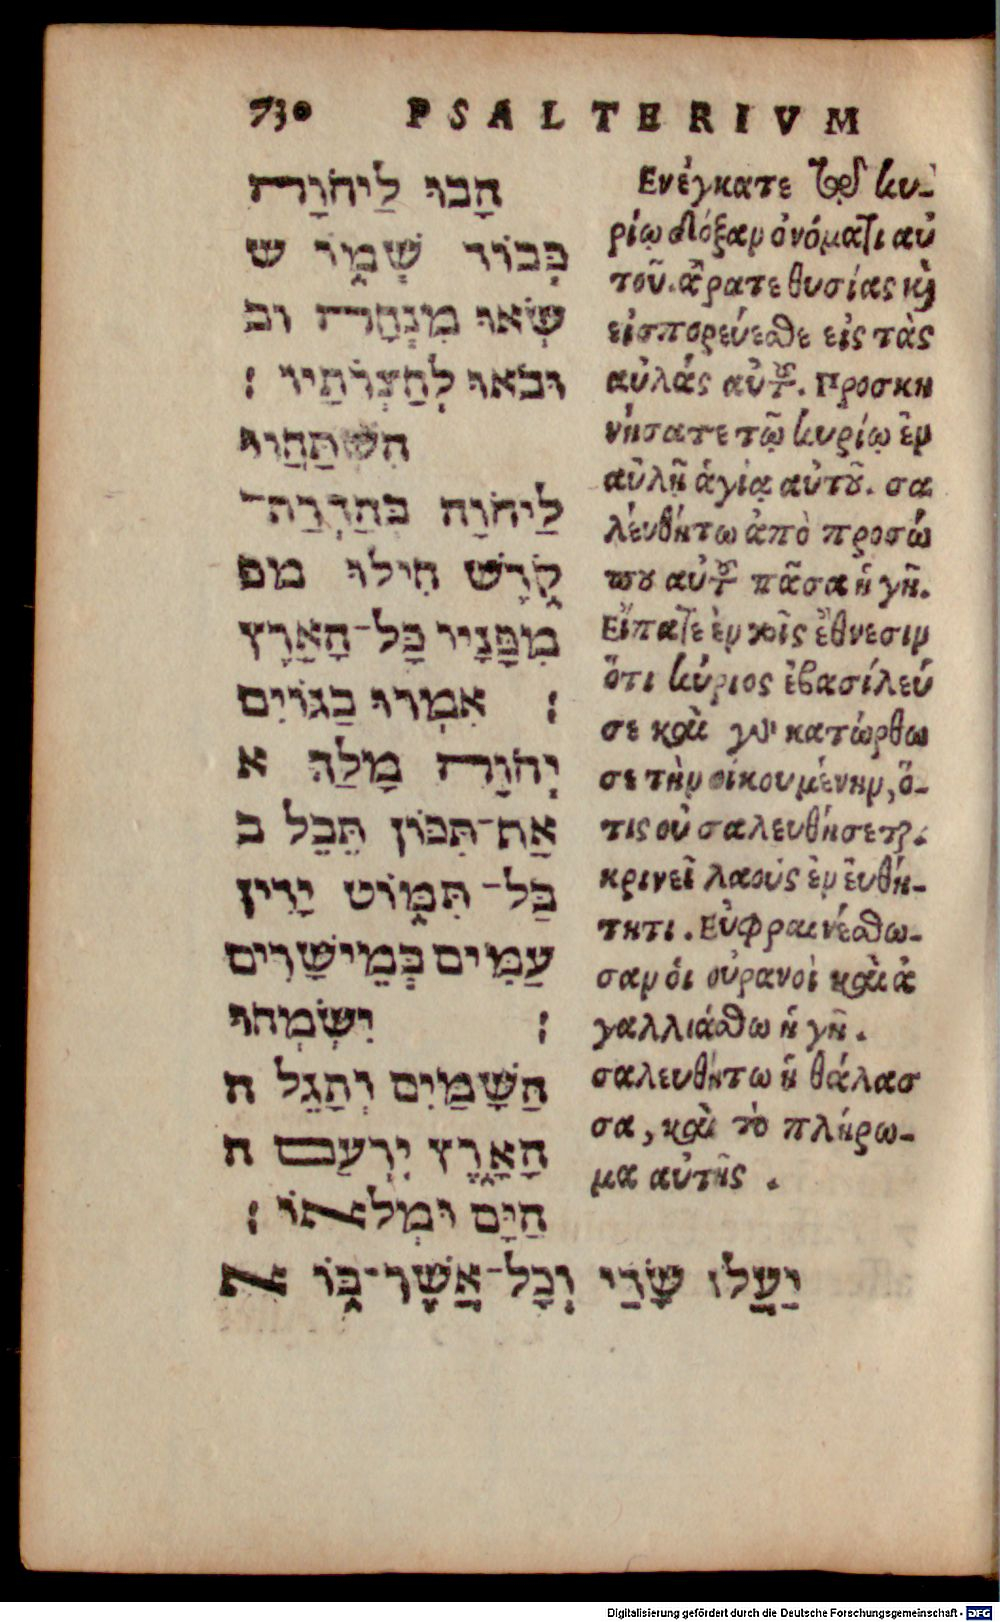 730 PSALTERIVM
הָבוּ לַיהֹוָה
כְּבוֹד שְׁמוֹ ש
שְׂאוּ מִנְחָה וב
וּבֹאוּ לְחַצְרֹתָיו :
הִשְׁתַּחֲווּ
לַיהֹוָה בְּהַדְרַת־
קֹדֶשׁ חִילוּ מפ
מִפָּנָיו כָּל־הָאָרֶץ
: אִמְרוּ בַגּוֹיִם
יְהֹוָה מָלַךְ א
אַת־תִּכּוֹן תֵּבֵל ב
בַּל־תִּמּוֹט יָדִין
עַמִּים בְּמֵישָׁרִים
: יִשְׂמְחוּ
הַשָּׁמַיִם וְתָגֵל ה
הָאָרֶץ יִרְעַם ה
הַיָּם וּמְלאוֹ :
יַעֲלוֹ שָׂדַי וְכָל־אֲשֶׁר־בּוֹ א
Ενέγκατε τῷ κυ-
ρίῳ δόξαν ὀνόματι αὐ
τοῦ. ἄρατε θυσίας κὶ
εἰσπορεύεσθε εἰς τὰς
αὐλάς αὐτοῦ. Προσκη
νήσατε τῷ κυρίῳ ἐν
αὐλῇ ἁγίᾳ αὐτοῦ. σα
λευθήτω ἀπὸ προσώ
που αὐτοῦ πᾶσα ἡ γῆ.
Εἴπατε ἐν τοῖς ἔθνεσιν
ὅτι κύριος ἐβασίλευ
σε καὶ γὰρ κατώρθω
σε τὴν οἰκουμένην, ὅ-
τις οὐ σαλευθήσεται.
κρινεῖ λαοὺς ἐν εὐθύ-
τητι. Εὐφραινέσθω-
σαν οἱ οὐρανοὶ καὶ ἀ
γαλλιάσθω ἡ γῆ.
σαλευθήτω ἡ θάλασ
σα, καὶ τὸ πλήρω-
μα αὐτῆς.
Digitalisierung gefördert durch die Deutsche Forschungsgemeinschaft - DFG